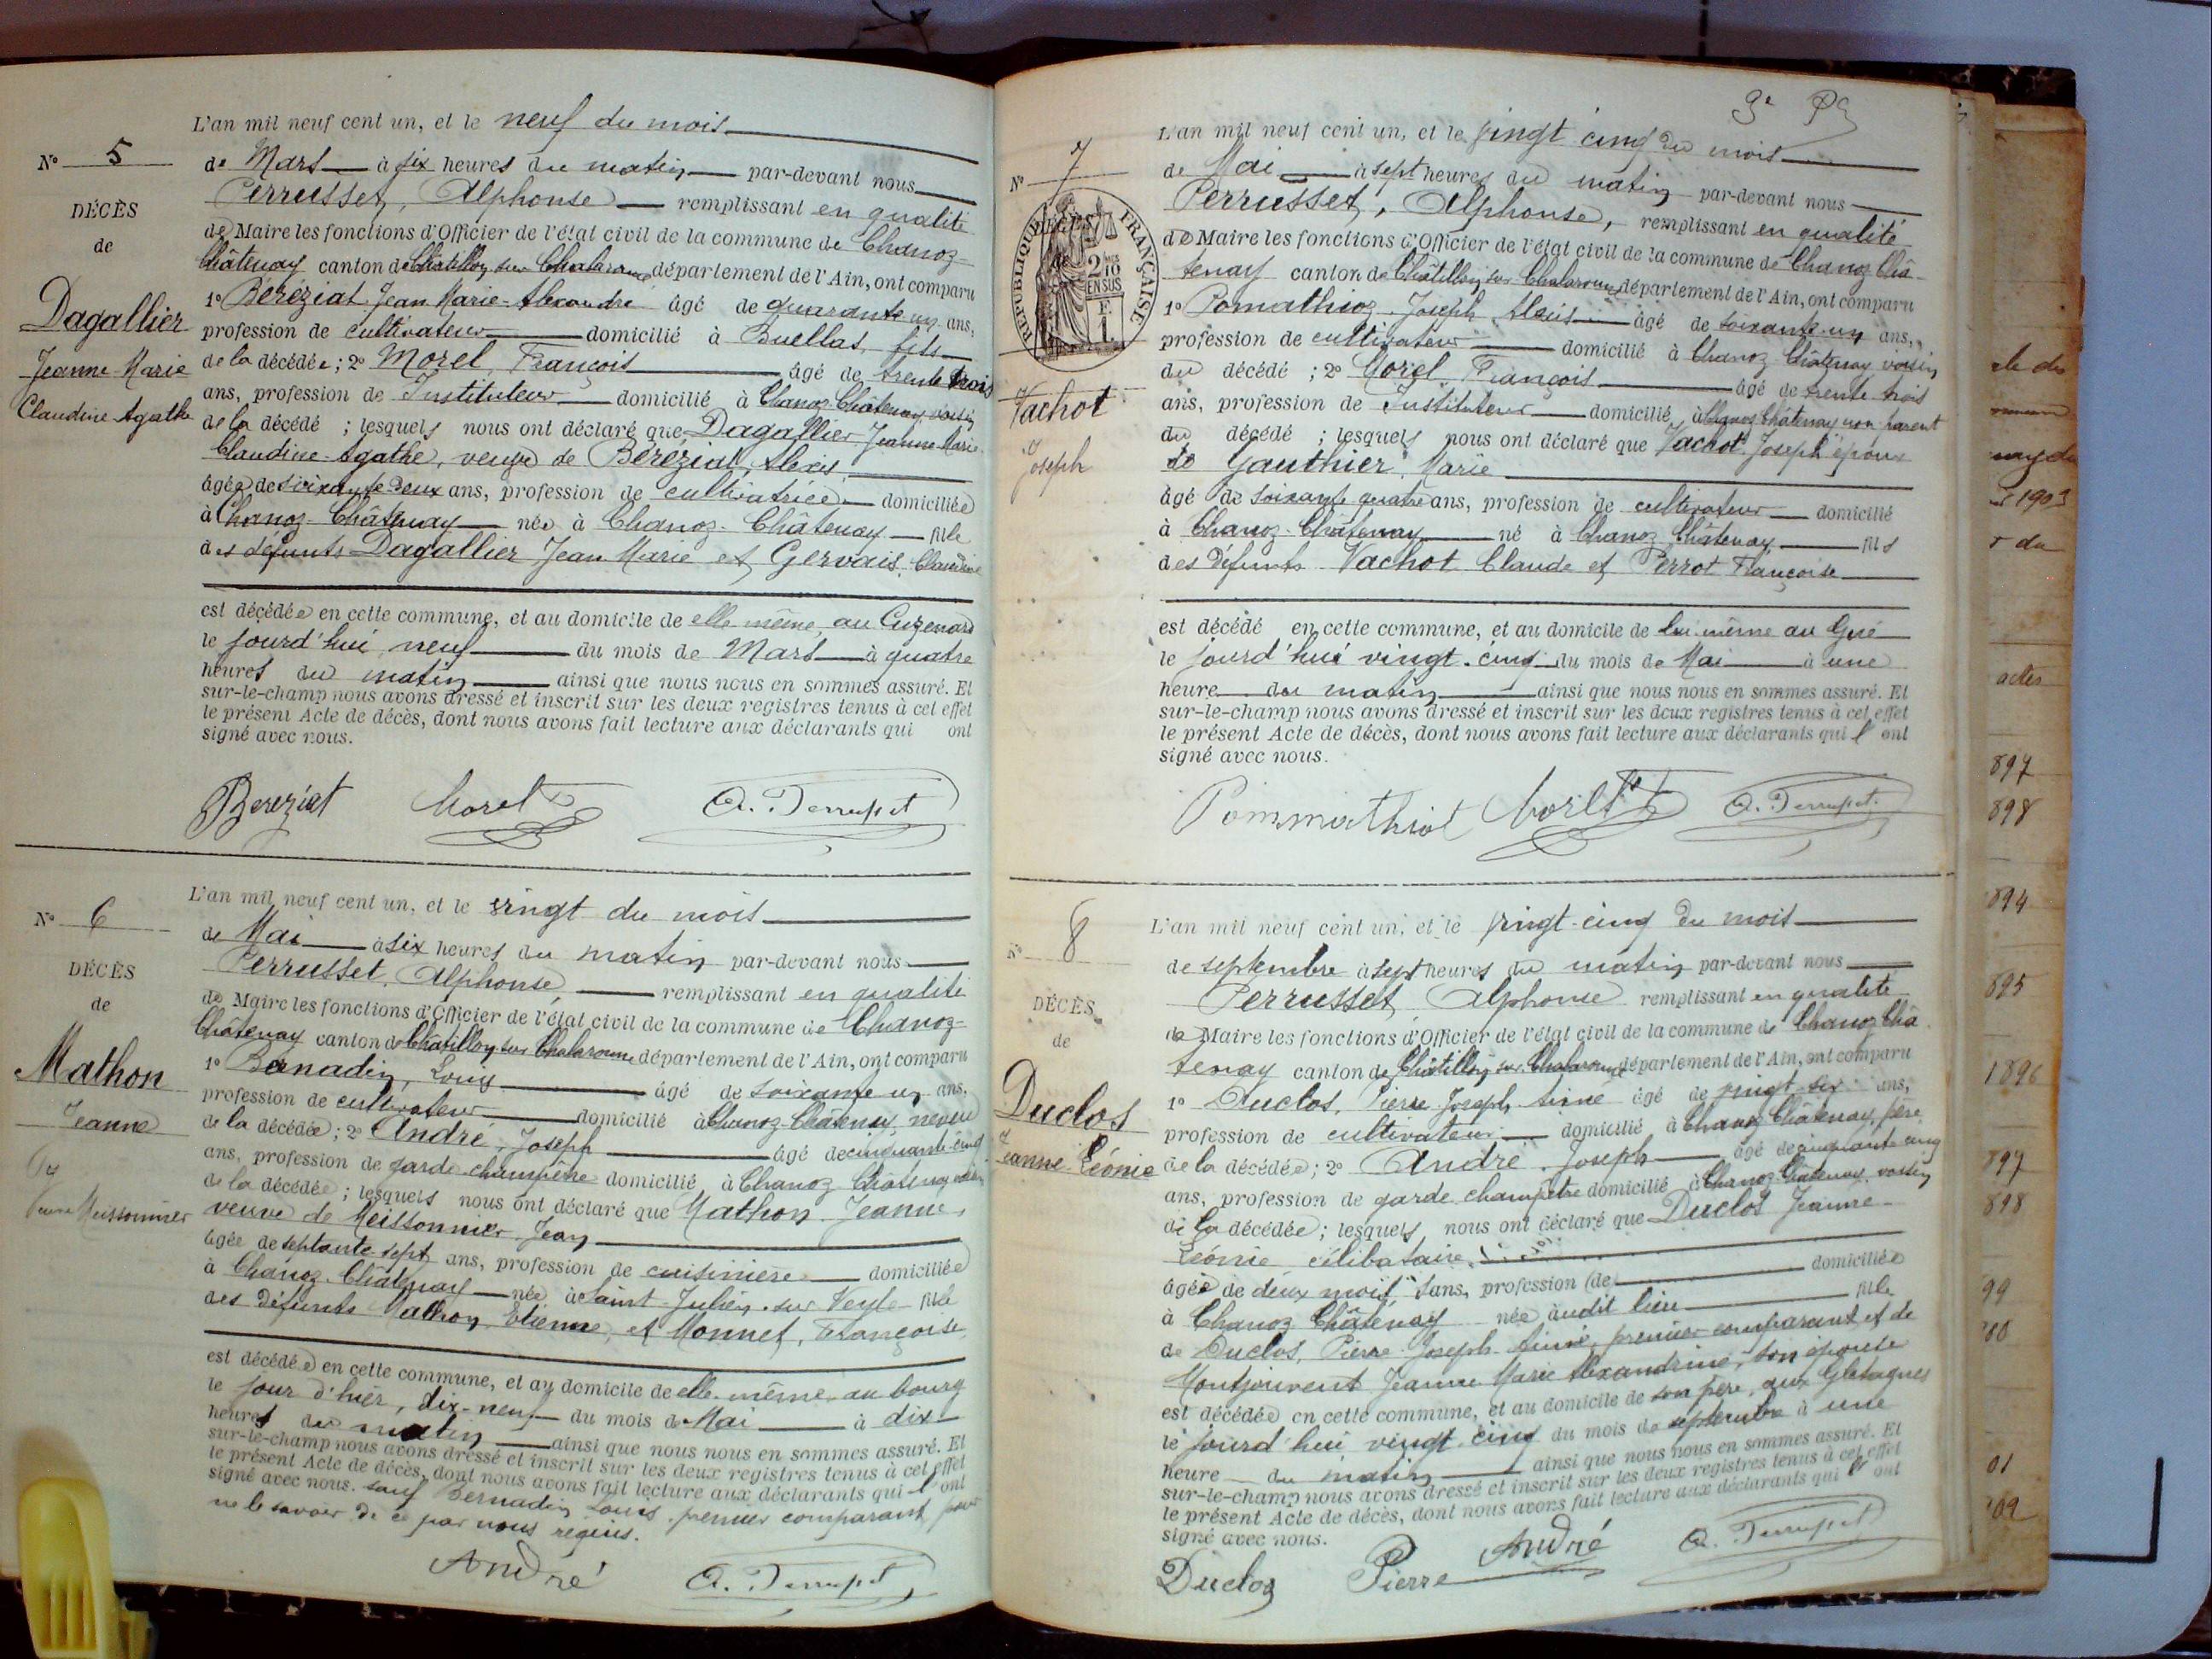 L'an mil neuf cent un, et le neuf du mois
N° 5
de Mars à six heures du matin par-devant nous
Perrusset, Alphonse remplissant en qualité
DÉCÈS
de
de Maire les fonctions d'Officier de l'état civil de la commune de Chanoz-
Châtenay canton de Châtillon sur Chalaronne département de l'Ain, ont comparu
1° Béréziat Jean Marie-Alexandre âgé de quarante un ans,
Dagallier
Jeanne-Marie
Claudine Agathe
profession de cultivateur domicilié à Buellas, fils
de la décédée; 2° Morel, François âgé de trente trois
ans, profession de Instituteur domicilié à Chanoz-Châtenay, voisin
de la décédé ; lesquels nous ont déclaré que Dagallier Jeanne-Marie-
Claudine-Agathe, veuve de Béréziat, Alexis,
âgée de soixante-deux ans, profession de cultivatrice domiciliée
à Chanoz-Châtenay née à Chanoz-Châtenay fille
des défunts Dagallier Jean Marie et Gervais, Claudine
est décédée en cette commune, et au domicile de elle même, au Cuzenard
le jourd'hui neuf du mois de Mars à quatre
heures du matin ainsi que nous nous en sommes assuré. Et
sur-le-champ nous avons dressé et inscrit sur les deux registres tenus à cet effet
le présent Acte de décès, dont nous avons fait lecture aux déclarants qui ont
signé avec nous.
Bereziat Morel A. Perrusset
L'an mil neuf cent un, et le vingt du mois
N° 6
de Mai à six heures du matin par-devant nous
Perrusset, Alphonse, remplissant en qualité
DÉCÈS
de
de Maire les fonctions d'Officier de l'état civil de la commune de Chanoz-
Châtenay canton de Châtillon sur Chalaronne département de l'Ain, ont comparu
Mathon
Jeanne
Veuve Meissonnier
1° Bernadin, Louis âgé de soixante un ans,
profession de cultivateur domicilié à Chanoz-Châtenay, neveu
de la décédée; 2° André, Joseph âgé de cinquante-cinq
ans, profession de garde-champêtre domicilié à Chanoz-Châtenay voisin
de la décédée ; lesquels nous ont déclaré que Mathon, Jeanne,
veuve de Meissonnier Jean
âgée de septante sept ans, profession de cuisinière domiciliée
à Chanoz-Châtenay née à Saint-Julien-sur Veyle fille
des défunts Mathon Etienne, et Monnet, Françoise
est décédée en cette commune, et au domicile de elle-même, au bourg
le jour d'hier, dix-neuf du mois de Mai à dix
heures du matin ainsi que nous nous en sommes assuré. Et
sur-le-champ nous avons dressé et inscrit sur les deux registres tenus à cet effet
le présent Acte de décès, dont nous avons fait lecture aux déclarants qui l'ont
signé avec nous. sauf Bernadin Louis, premier comparant pour
ne le savoir de ce par nous requis.
André A. Perrusset
L'an mil neuf cent un, et le vingt cinq du mois
N° 7
de Mai à sept heures du matin par-devant nous
Perrusset, Alphonse, remplissant en qualité
RÉPUBLIQUE FRANÇAISE
DÉCÈS
de
2/10 EN SUS
F. 1.
de Maire les fonctions d'Officier de l'état civil de la commune de Chanoz Châ-
tenay canton de Châtillon sur Chalaronne département de l'Ain, ont comparu
1° Pomathioz Joseph Alexis âgé de soixante-un ans,
profession de cultivateur domicilié à Chanoz Châtenay, voisin
Vachot
Joseph
du décédé ; 2° Morel, François âgé de trente trois
ans, profession de Instituteur domicilié à Chanoz Châtenay non parent
du décédé ; lesquels nous ont déclaré que Vachot Joseph époux
de Gauthier, Marie
âgé de soixante quatre ans, profession de cultivateur domicilié
à Chanoz-Châtenay né à Chanoz Châtenay fils
des défunts Vachot Claude et Perrot Françoise
est décédé en cette commune, et au domicile de lui-même au Gué
le jourd'hui vingt-cinq du mois de Mai à une
heure du matin ainsi que nous nous en sommes assuré. Et
sur-le-champ nous avons dressé et inscrit sur les deux registres tenus à cet effet
le présent Acte de décès, dont nous avons fait lecture aux déclarants qui l'ont
signé avec nous.
Pommathiot Morel A. Perrusset
L'an mil neuf cent un, et le vingt-cinq du mois
N° 8
de septembre à sept heures du matin par-devant nous
Perrusset Alphonse remplissant en qualité
DÉCÈS
de
de Maire les fonctions d'Officier de l'état civil de la commune de Chanoz Châ-
tenay canton de Châtillon sur Chalaronne département de l'Ain, ont comparu
Duclos
Jeanne-Léonie
1° Duclos, Pierre Joseph Aimé âgé de vingt-six ans,
profession de cultivateur domicilié à Chanoz Châtenay, père
de la décédée; 2° André, Joseph âgé de cinquante cinq
ans, profession de garde-champêtre domicilié à Chanoz-Châtenay, voisin
de la décédée; lesquels nous ont déclaré que Duclos Jeanne-
Léonie célibataire,
âgée de deux mois sans, profession (de domiciliée
à Chanoz Châtenay née audit lieu fille
de Duclos, Pierre-Joseph-Aimé, premier comparant et de
Montjouvent Jeanne Marie Alexandrine, son épouse
est décédée en cette commune, et au domicile de son père, aux Gletagnes
le jourd'hui vingt-cinq du mois de septembre à une
heure du matin ainsi que nous nous en sommes assuré. Et
sur-le-champ nous avons dressé et inscrit sur les deux registres tenus à cet effet
le présent Acte de décès, dont nous avons fait lecture aux déclarants qui l'ont
signé avec nous.
Duclos Pierre André A. Perrusset
1903
actes
897
898
894
895
1896
897
898
99
01